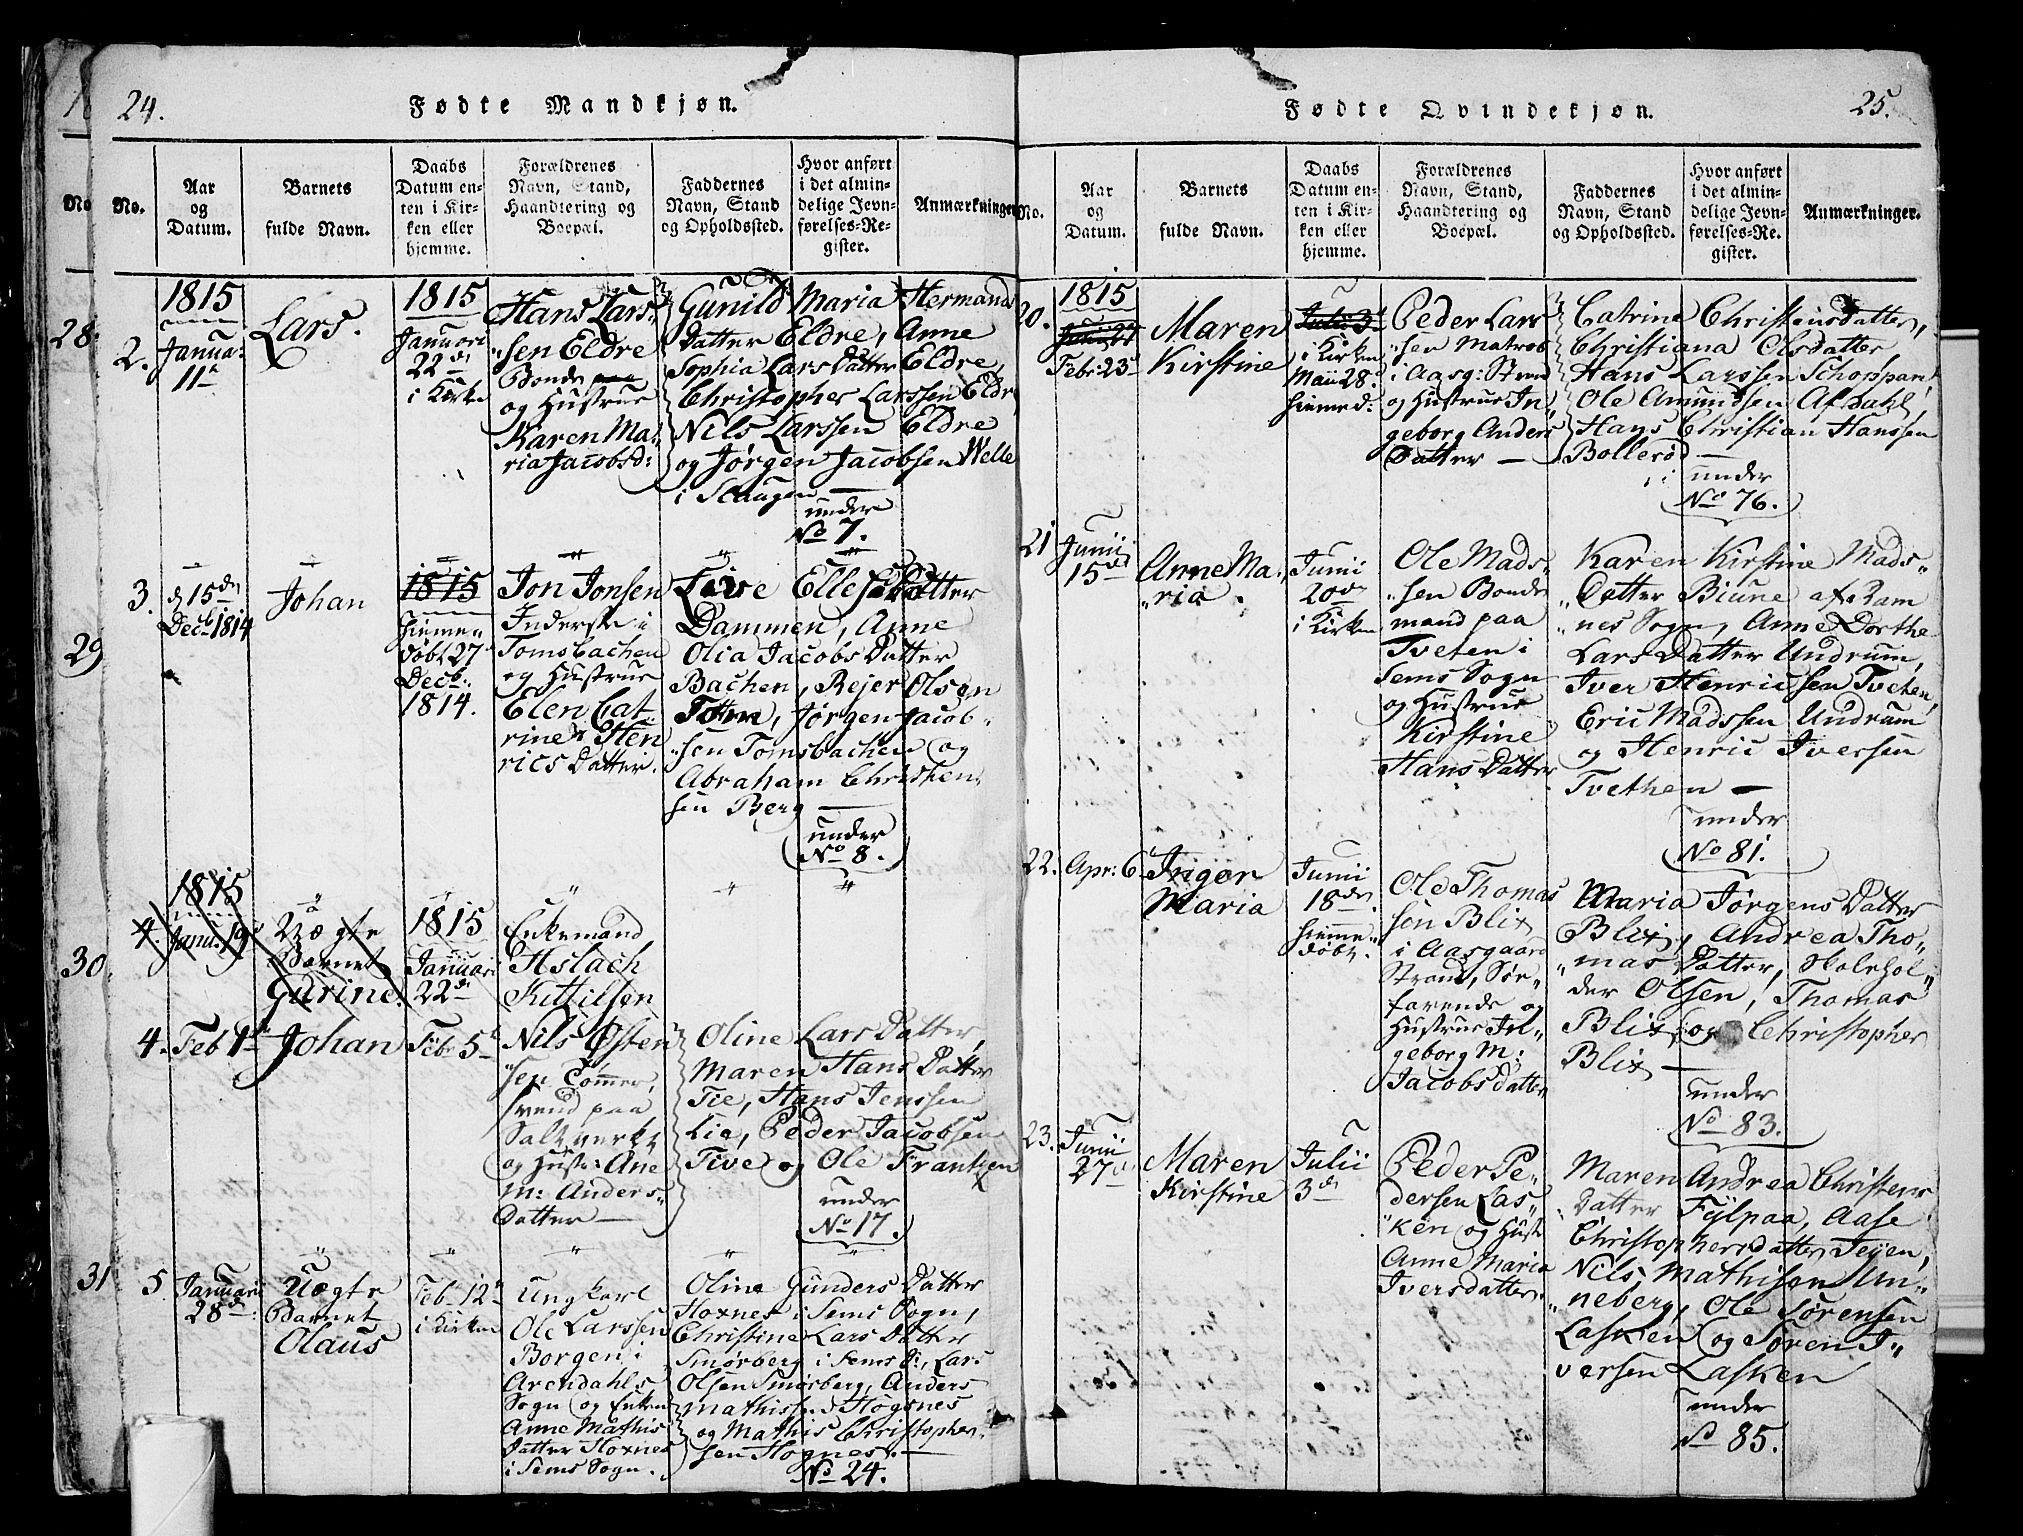 24.
Fødte Mandkjøn.
No.
Aar
og
Datum.
Barnets
fulde Navn.
Daabs
Datum en-
ten i Kir-
ken eller
hjemme.
Forældrenes
Navn, Stand,
Haandtering og
Boepæl.
Faddernes
Navn, Stand
og Opholdssted.
Hvor anført
i det almin-
delige Jevn-
førelses-Re-
gister.
Anmærkninger
2.
1815
Januar
11te
Lars.
1815
Januari
22de
i Kirken
Hans Lars-
sen Eldre
Bonde
og Hustrue
Karen Ma-
ria Jacobsd:
Gunild Maria Hermands
Datter Eldre, Anne
Sophia Lars Datter Eldre,
Christopher Larssen Eldre
Nils Larssen Eldre
og Jørgen Jacobsen Welle
i Slaugen
under
No 7.
3.
d 15de
Decb 1814
Johan
1815
hieme-
døbt 27
Decb:
1814.
Jon Jonsen
Inderste i
Tomsbachen
og Hustrue
Elen Cat-
rine Hen
rics Datter.
Live Datter
Dammen, Anne
Olia Jacobs Datter
Bachen, Rejer Olsen
Tom, Jørgen Jacob-
sen Tomsbachen og
Abraham Christen-
sen Berg
under
No 8.
4.
1815
Janu. 19
Uægte
Barnet
Gurine.
1815
Januari
22de
Enkemand
Aslach
Kittilsen
4.
Feb 1te
Johan
Febr 5te
Nils Østen
sen Tømmer-
svend paa
Saltverket
og Hust: Ane
M: Anders-
Datter
Oline Lars Datter,
Maren Hans Datter
Lie, Hans Jenssen
Lie, Peder Jacobsen
Tive og Ole Frantzen
under
No 17.
5
Januari
28de
Uægte
Barnet
Olaus
Feb. 12te
i Kirken
Ungkarl
Ole Larssen
Borgen i
Arendahls
Sogn og Enken
Anne Mathis
Datter Hoxnes
i Sems Sogn.
Oline Gunders Datter
Hoxnes i Sems Sogn,
Christine Lars Datter
Smørberg i Sems S:, Lars
Olsen Smørberg, Anders
Mathissen Hogsnes
og Mathis Christopher-
sen Hognes.
No 24.
28.
29
30
31
25.
Fødte Qvindekjøn.
No.
Aar
og
Datum.
Barnets
fulde Navn.
Daabs
Datum en-
ten i Kir-
ken eller
hjemme.
Forældrenes
Navn, Stand,
Haandtering og
Boepæl.
Faddernes
Navn, Stand
og Opholdssted.
Hvor anført
i det almin-
delige Jevn-
førelses-Re-
gister.
Anmærkninger.
20.
1815
Junii 27
Febr: 23d
Maren
Kirstine
Julii 3d
i Kirken
Maii 28.
hiemed:
Peder Lars
sen Matros
i Aasg: Strand
og Hustrue In-
geborg Anders
Datter
Catrine Christensdatter,
Christiana Olsdatter
Hans Larssen
Ole Amundsen Afdahl,
Hans Christian Hanssen
Bollerød
under
No 76.
21
Junii
15de
Anne Ma-
ria
Junii
20de
i Kirken
Ole Mads-
sen Bonde
mand paa
Tveten i
Sems Sogn
og Hustrue
Kirstine
Hans Datter
Karen Kirstine Mads-
Datter Biune af Ram
nes Sogn, Anne Dorthe
Lars Datter Undrum,
Iver Henricsen Tvethen,
Eric Madssen Undrum
og Henric Iversen
Tvethen
under
No 81.
22.
Apr: 6
Inger
Maria
Junii
18de
hieme-
døbt.
Ole Thomas
sen Blix
i Aasgaard
Strand, Sør-
farende og
Hustrue In-
geborg M:
Jacobsdatter
Maria Jørgens Datter
Blix, Andrea Tho-
mas Datter, Skolehol-
der Olsen, Thomas
Blix, og Christopher
Blix
under
No 83.
23.
Junii
27d
Maren
Kirstine
Julii
3de
Peder Pe-
dersen Las-
ken og Hust:
Anne Maria
Iversdatter.
Maren Andrea Christens
Datter Fylpaa, Aase
Christophersdatter Teyen,
Nils Mathisen Un-
neberg, Ole Sørensen
Lasken og Søren I-
versen Lasken
under
No 85.